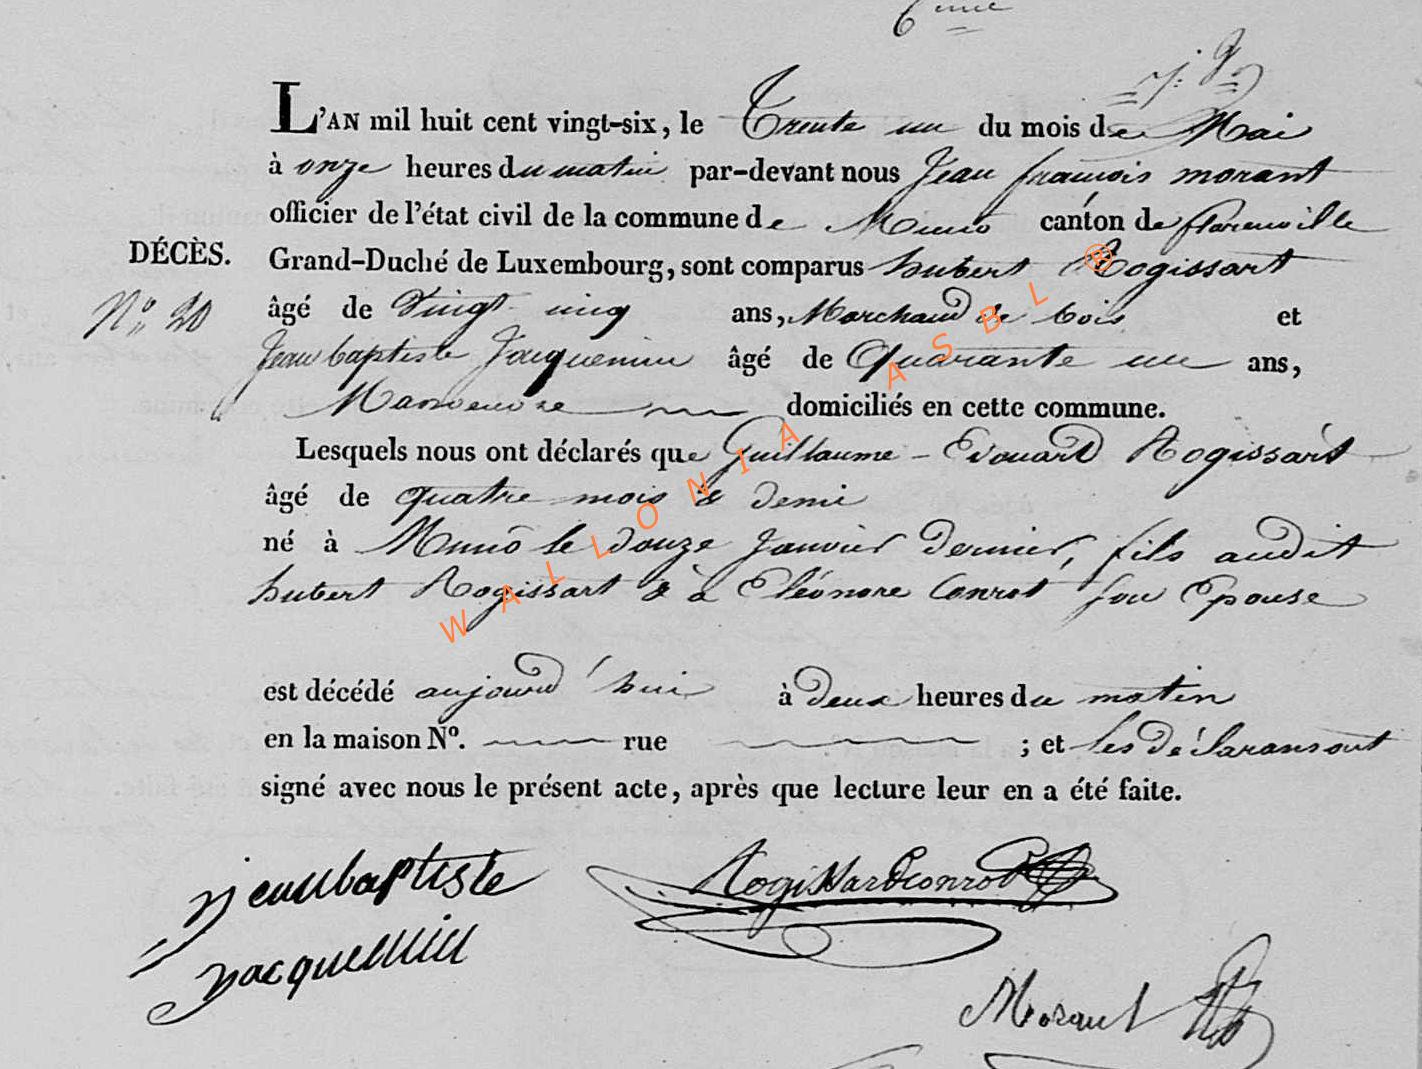 6eme
L'AN mil huit cent vingt-six, le Trente un du mois de Mai
à onze heures du matin par-devant nous Jean françois morant
officier de l'état civil de la commune de Muno canton de florenville
DÉCÈS. Grand-Duché de Luxembourg, sont comparus hubert Rogissart
No 20 âgé de Vingt cinq ans, Marchand de bois et
Jean baptiste Jacquemin âgé de Quarante un ans,
Manoeuvre domiciliés en cette commune.
Lesquels nous ont déclarés que Guillaume - Edouard Rogissart
âgé de quatre mois & demi
né à Muno le douze Janvier dernier, fils audit
hubert Rogissart & à Eléonore Conrot son Epouse
est décédé aujourd'hui à deux heures du matin
en la maison No. rue ; et les déclarans ont
signé avec nous le présent acte, après que lecture leur en a été faite.
jeanbaptiste Rogissart Conrot
jacquemin
Morant
WALLONIA ASBL ®